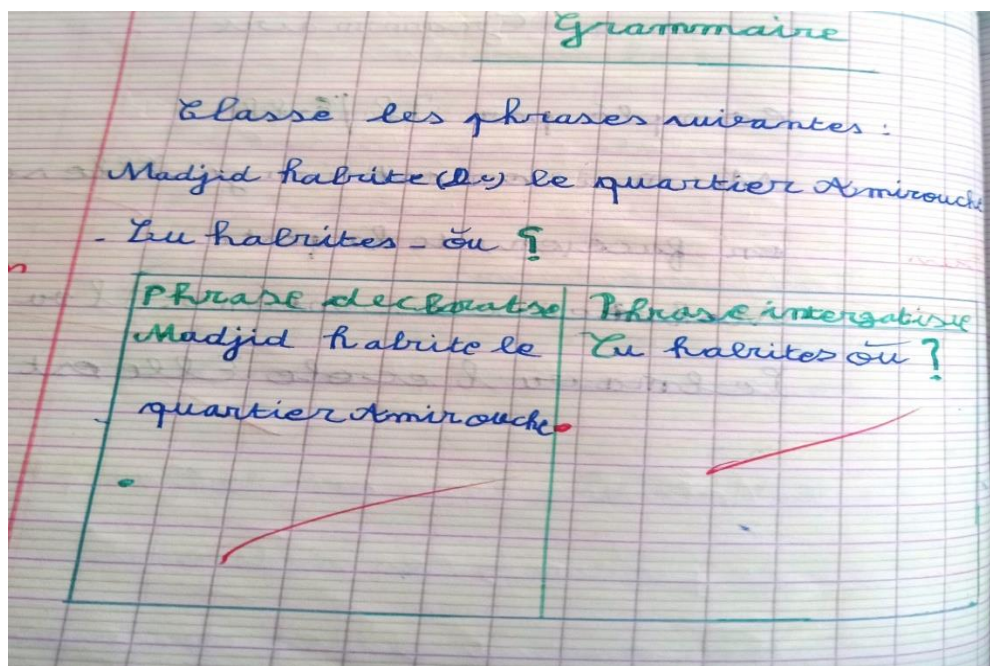 Grammaire
Classe les phrases suivantes :
Madjid habite le quartier Amirouche
- Tu habites - où ?
Phrase declaratse Phrase intergatisie
Madjid habite le Tu habites où ?
quartier Amirouche.